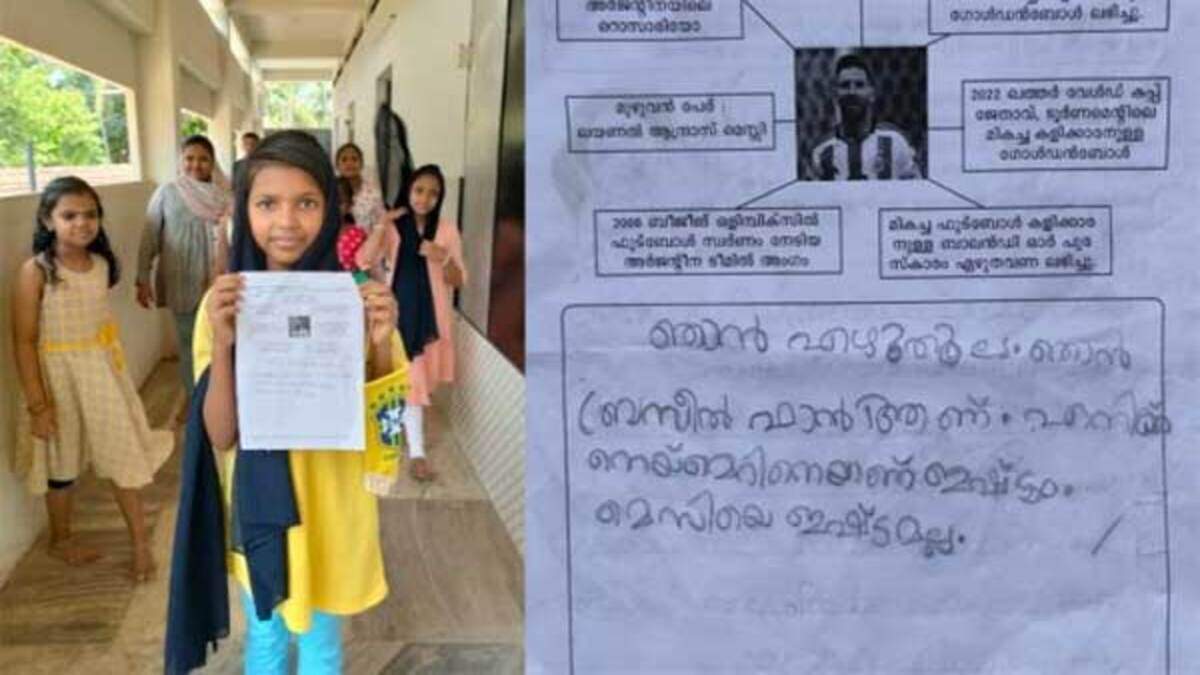 അർജന്റീനയിലെ
റൊസാരിയോ
ഗോൾഡൻബോൾ ലഭിച്ചു.
മുഴുവൻ പേര് :
ലയണൽ ആന്ദ്രാസ് മെസ്സി
2022 ഖത്തർ വേൾഡ് കപ്പ്
ജേതാവ്, ടൂർണമെന്റിലെ
മികച്ച കളിക്കാരനുള്ള
ഗോൾഡൻബോൾ
2008 ബീജിങ് ഒളിമ്പിക്സിൽ
ഫുട്ബോൾ സ്വർണം നേടിയ
അർജന്റീന ടീമിൽ അംഗം
മികച്ച ഫുട്ബോൾ കളിക്കാര
നുള്ള ബാലൻഡി ഓർ പുര
സ്കാരം ഏഴുതവണ ലഭിച്ചു.
ഞാൻ എഴുതൂല. ഞാൻ
ബ്രസീൽ ഫാൻ ആണ്. എനിക്ക്
നെയ്മെറിനെയാണ് ഇഷ്ട്ടം.
മെസിയെ ഇഷ്ട്ടമല്ല.